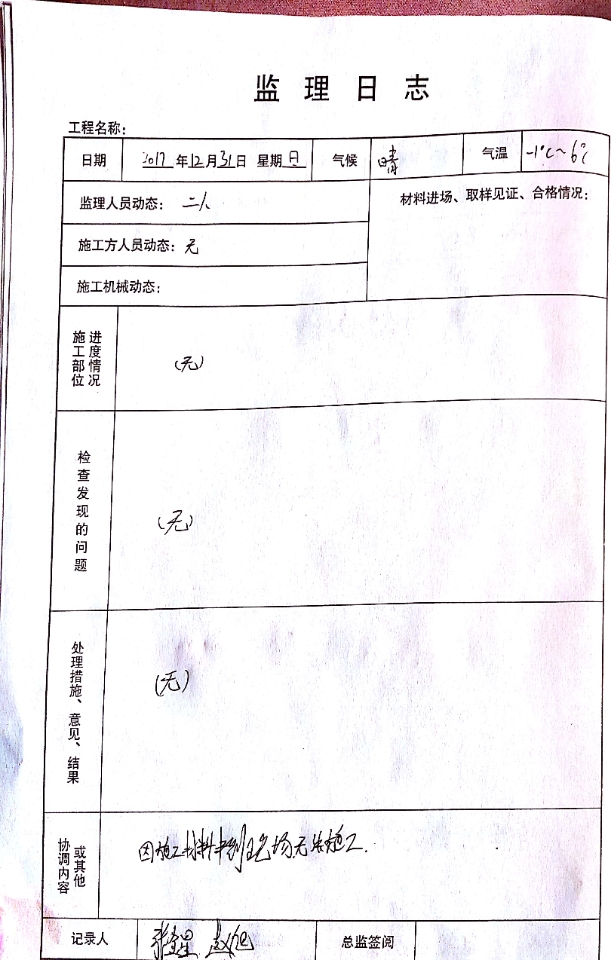 监理日志
工程名称:
日期 2017年12月31日 星期日 气候 晴 气温 -1℃~6℃
监理人员动态: 二人
材料进场、取样见证、合格情况:
施工方人员动态: 无
施工机械动态:
施工部位进度情况
(无)
检查发现的问题
(无)
处理措施、意见、结果
(无)
协调内容或其他
因施工材料未到现场无法施工.
记录人 赵旭 总监签阅